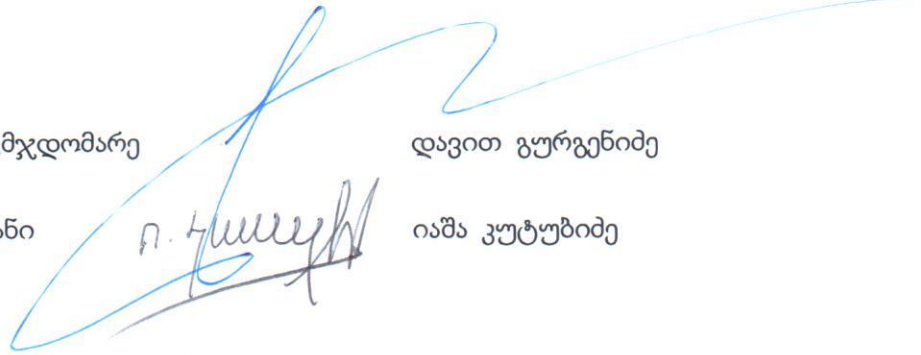 მჯდომარე დავით გურგენიძე
ანი იაშა კუტუბიძე